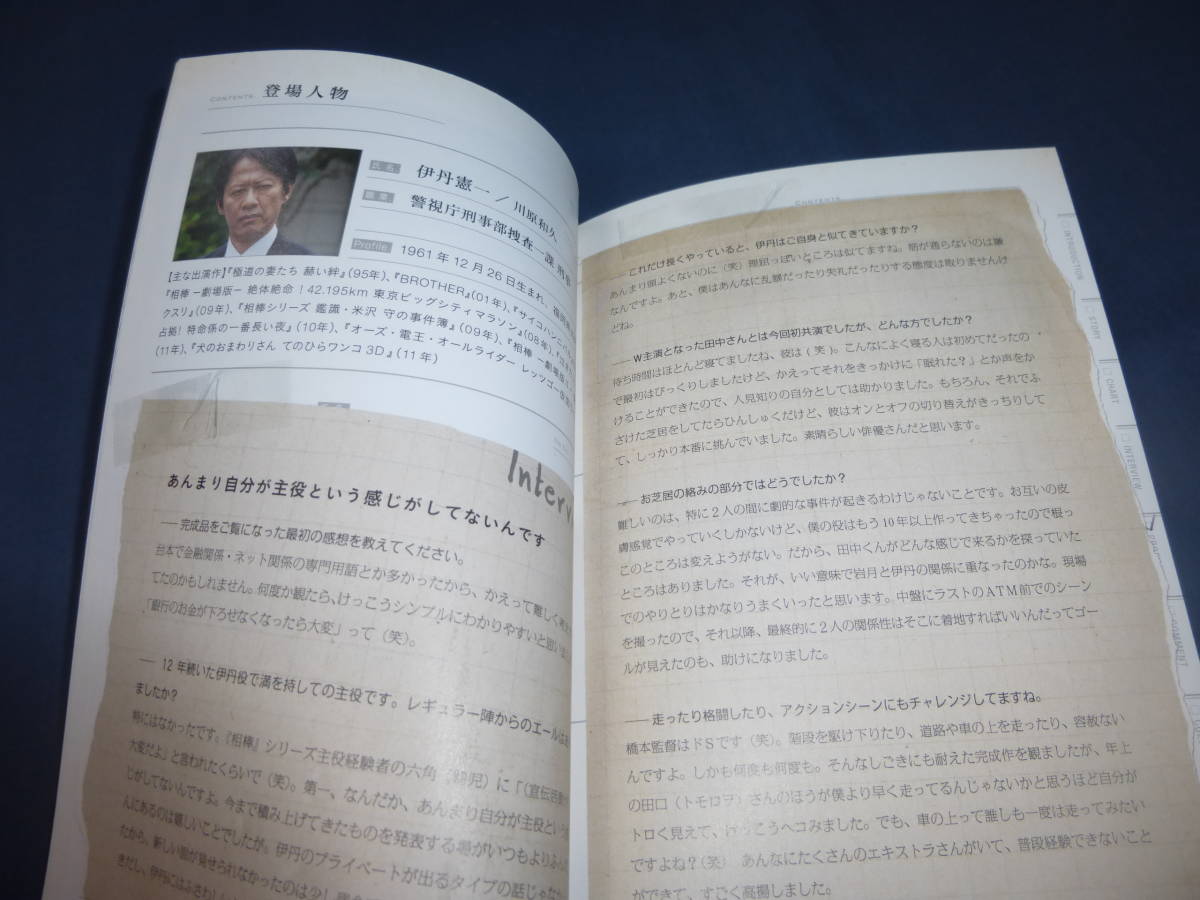 CONTENTS 登場人物
氏名 伊丹憲一／川原和久
職業 警視庁刑事部捜査一課 刑事
Profile 1961年12月26日生まれ、福岡
【主な出演作】『極道の妻たち 赫い絆』(95年)、『BROTHER』(01年)、『サイコハンニバル
『相棒 −劇場版− 絶体絶命！42.195km 東京ビッグシティマラソン』(08年)、
クスリ』(09年)、『相棒シリーズ 鑑識・米沢 守の事件簿』(09年)、『相棒 −劇場版Ⅱ−
占拠！特命係の一番長い夜』(10年)、『オーズ・電王・オールライダー レッツゴー
(11年)、『犬のおまわりさん てのひらワンコ3D』(11年)
Interv
あんまり自分が主役という感じがしてないんです
── 完成品をご覧になった最初の感想を教えてください。
台本で金融関係・ネット関係の専門用語とか多かったから、かえって難しく考え
てたのかもしれません。何度か観たら、けっこうシンプルにわかりやすいと思い
「銀行のお金が下ろせなくなったら大変」って（笑）。
── 12年続いた伊丹役で満を持しての主役です。レギュラー陣からのエールは
ましたか？
特にはなかったです。『相棒』シリーズ主役経験者の六角（精児）に「（宣伝活動
大変だよ」と言われたくらいで（笑）。第一、なんだか、あんまり自分が主役という
じがしてないんですよ。今まで積み上げてきたものを発表する場がいつもよりふ
んにあるのは嬉しいことでしたが。伊丹のプライベートが出るタイプの話じゃな
たから、新しい面が見せられなかったのは少し残念
きだし、伊丹にはふさわし
CONTENTS
── これだけ長くやっていると、伊丹はご自身と似てきていますか？
あんまり頭よくないのに（笑）理屈っぽいところは似てますね。筋が通らないのは嫌
なんですよ。あと、僕はあんなに乱暴だったり失礼だったりする態度は取りませんけ
どね。
── W主演となった田中さんとは今回初共演でしたが、どんな方でしたか？
待ち時間はほとんど寝てましたね、彼は（笑）。こんなによく寝る人は初めてだったの
で最初はびっくりしましたけど、かえってそれをきっかけに「眠れた？」とか声をか
けることができたので、人見知りの自分としては助かりました。もちろん、それでふ
ざけた芝居をしてたらひんしゅくだけど、彼はオンとオフの切り替えがきっちりして
て、しっかり本番に挑んでいました。素晴らしい俳優さんだと思います。
── お芝居の絡みの部分ではどうでしたか？
難しいのは、特に2人の間に劇的な事件が起きるわけじゃないことです。お互いの皮
膚感覚でやっていくしかないけど、僕の役はもう10年以上作ってきちゃったので根っ
このところは変えようがない。だから、田中くんがどんな感じで来るかを探っていた
ところはありました。それが、いい意味で岩月と伊丹の関係に重なったのかな。現場
でのやりとりはかなりうまくいったと思います。中盤にラストのATM前でのシーン
を撮ったので、それ以降、最終的に2人の関係性はそこに着地すればいいんだってゴー
ルが見えたのも、助けになりました。
── 走ったり格闘したり、アクションシーンにもチャレンジしてますね。
橋本監督はドSです（笑）。階段を駆け下りたり、道路や車の上を走ったり、容赦ない
んですよ。しかも何度も何度も。そんなしごきにも耐えた完成作を観ましたが、年上
の田口（トモロヲ）さんのほうが僕より早く走ってるんじゃないかと思うほど自分が
トロく見えて、けっこうヘコみました。でも、車の上って誰しも一度は走ってみたい
ですよね？（笑） あんなにたくさんのエキストラさんがいて、普段経験できないこと
ができて、すごく高揚しました。
INTRODUCTION
STORY
CHART
INTERVIEW
COMMENT